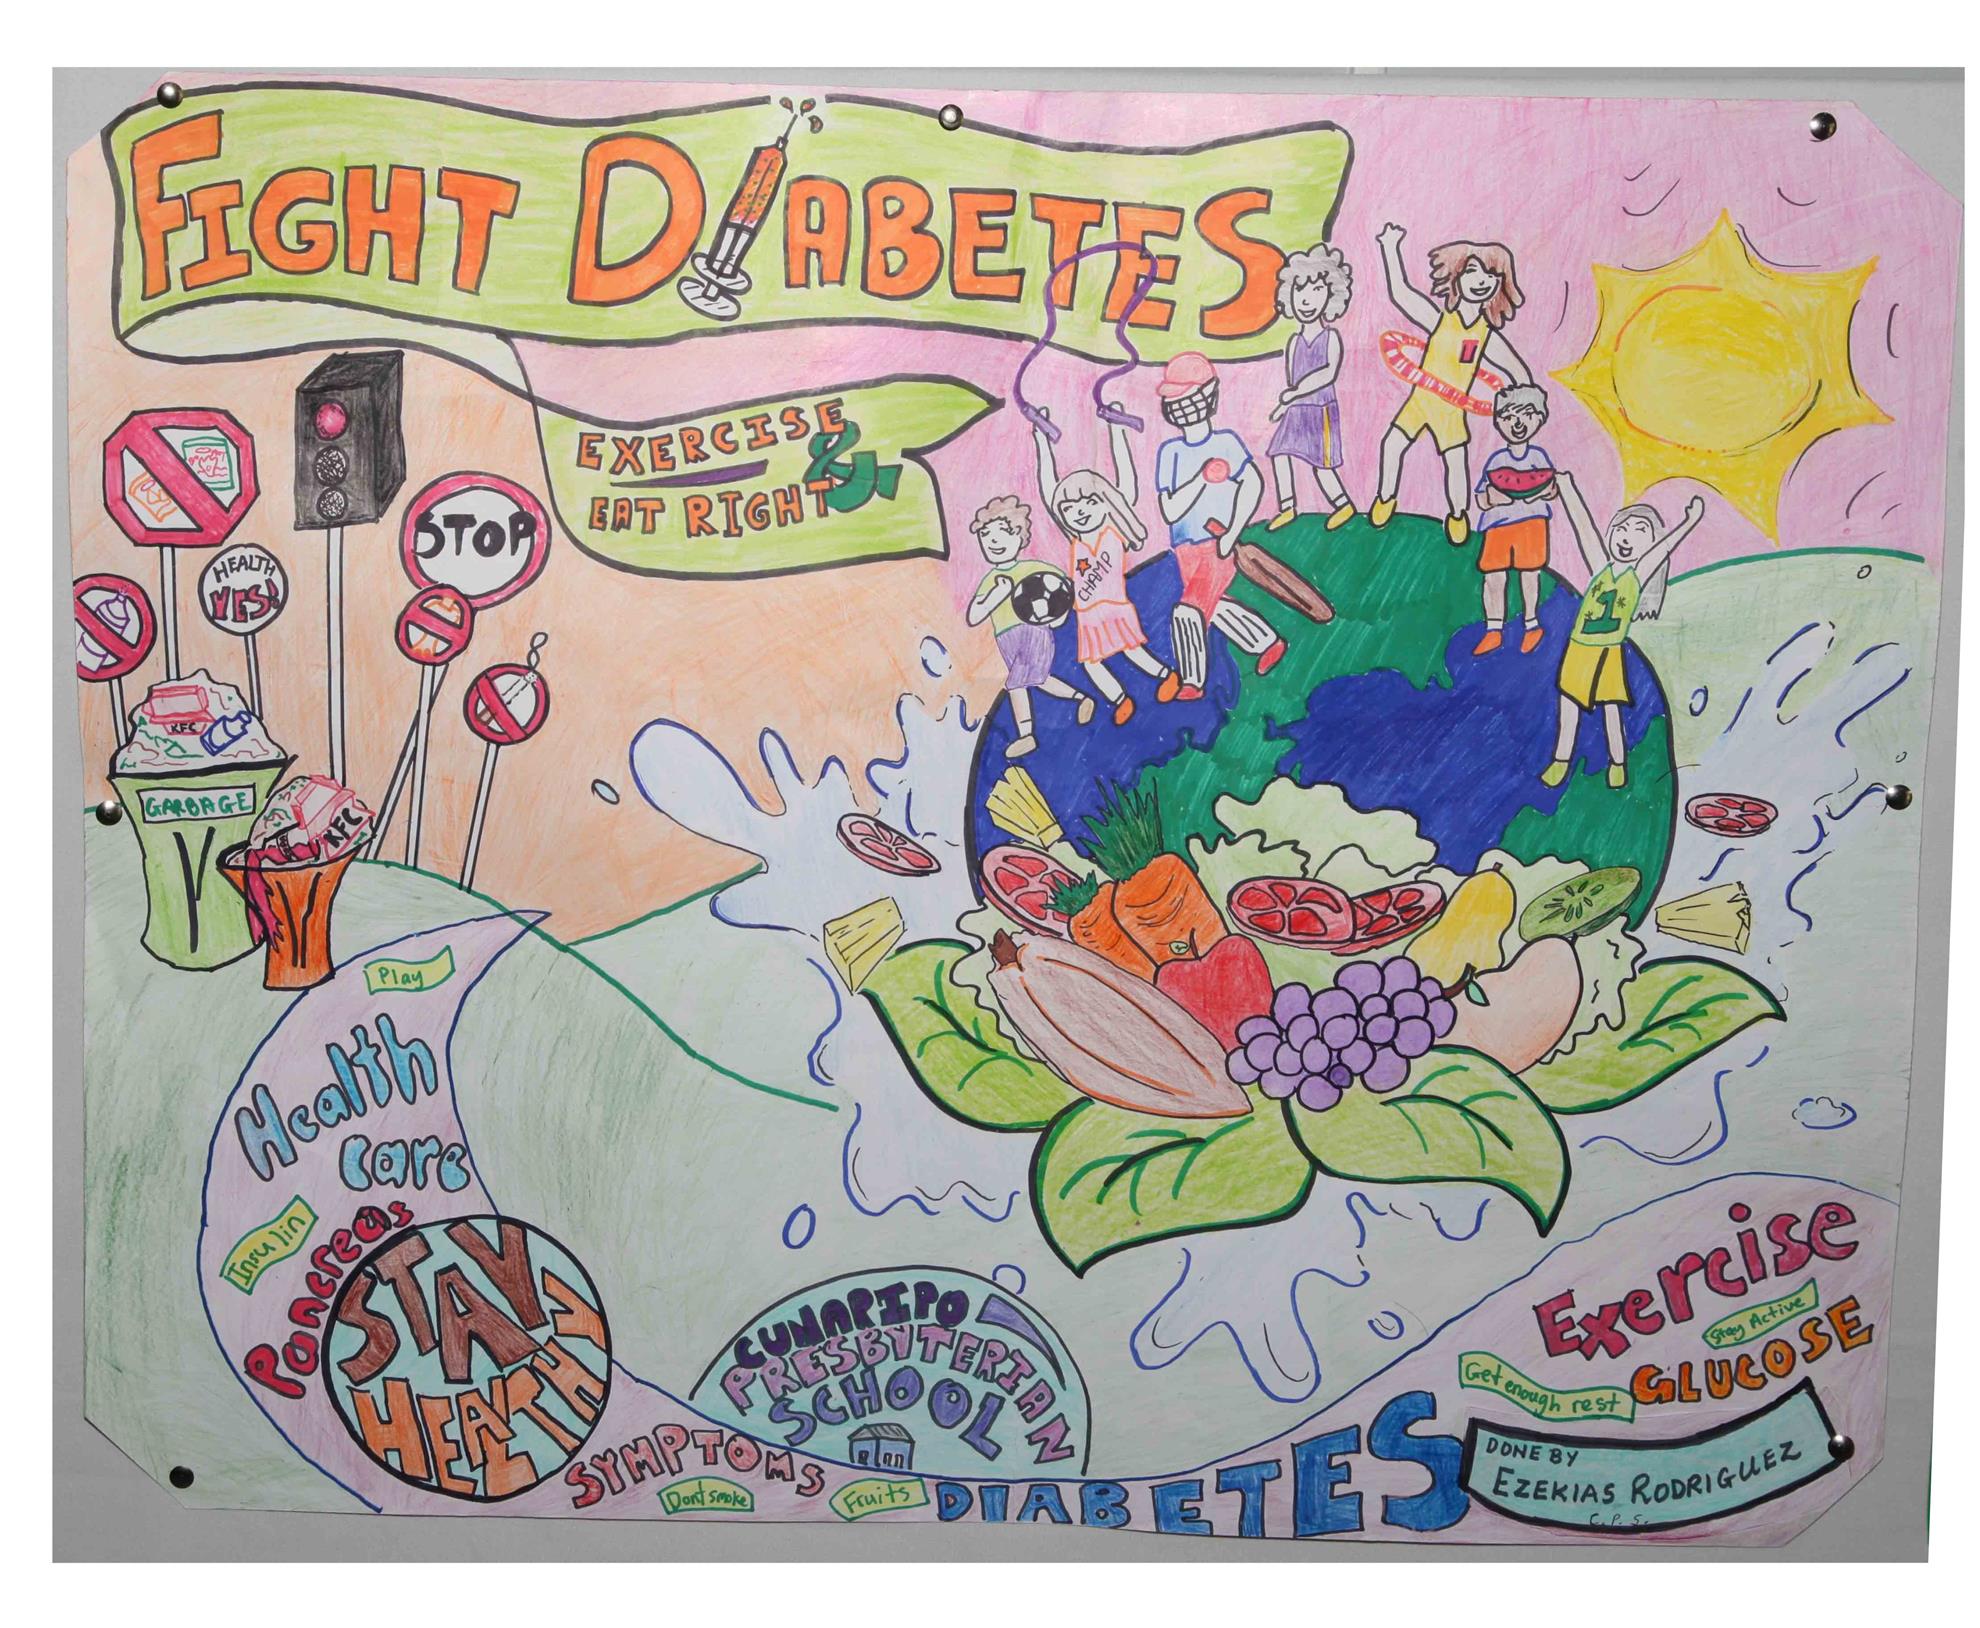 FIGHT DIABETES
EXERCISE &
EAT RIGHT
STOP
HEALTH
YES!
KFC
GARBAGE
KFC
CHAMP
T
1
Play
Health
care
Insulin
Pancreas
STAY
HEALTHY
CUNARIPO
PRESBYTERIAN
SCHOOL
SYMPTOMS
Dont smoke
Fruits
DIABETES
Exercise
Stay Active
GLUCOSE
Get enough rest
DONE BY
EZEKIAS RODRIGUEZ
C.P.S.